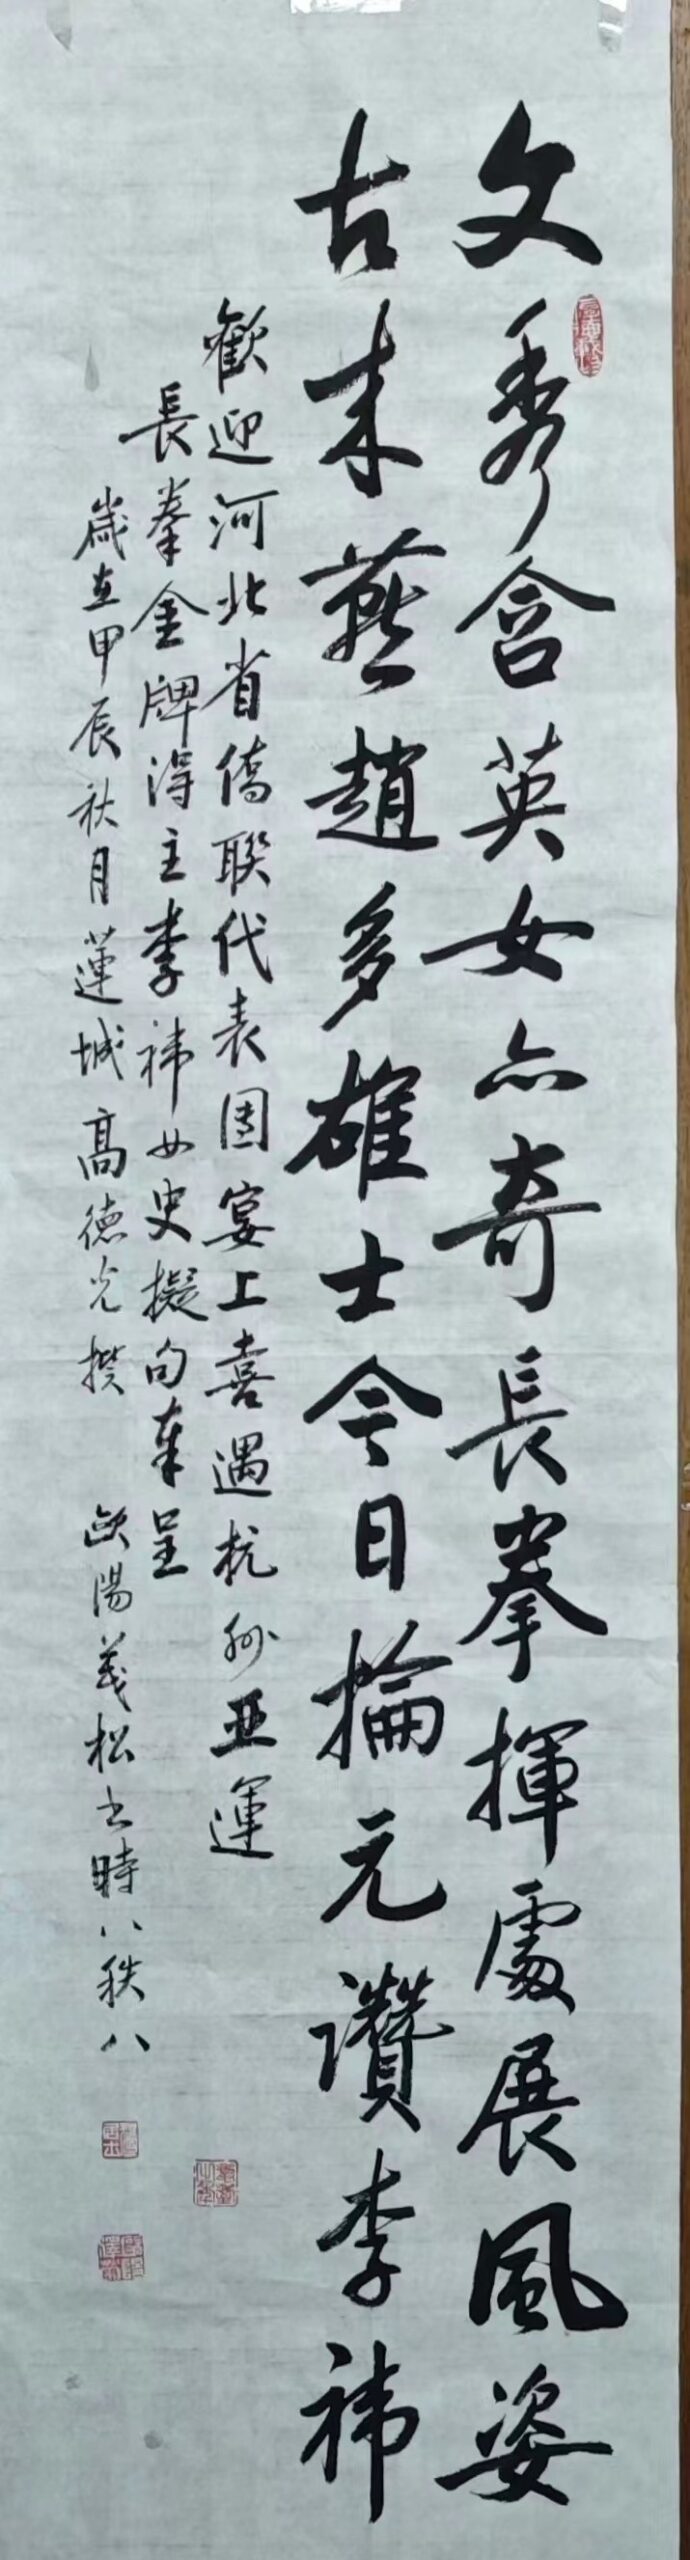 文秀含英女亦奇長拳揮處展風姿
古来燕趙多雄士今日掄元讚李禕
歡迎河北省僑聯代表團宴上喜遇杭州亚運
長拳金牌得主李禕女史擬句奉呈
歲在甲辰秋月蓮城高德光撰
歐陽義松书時八秩八